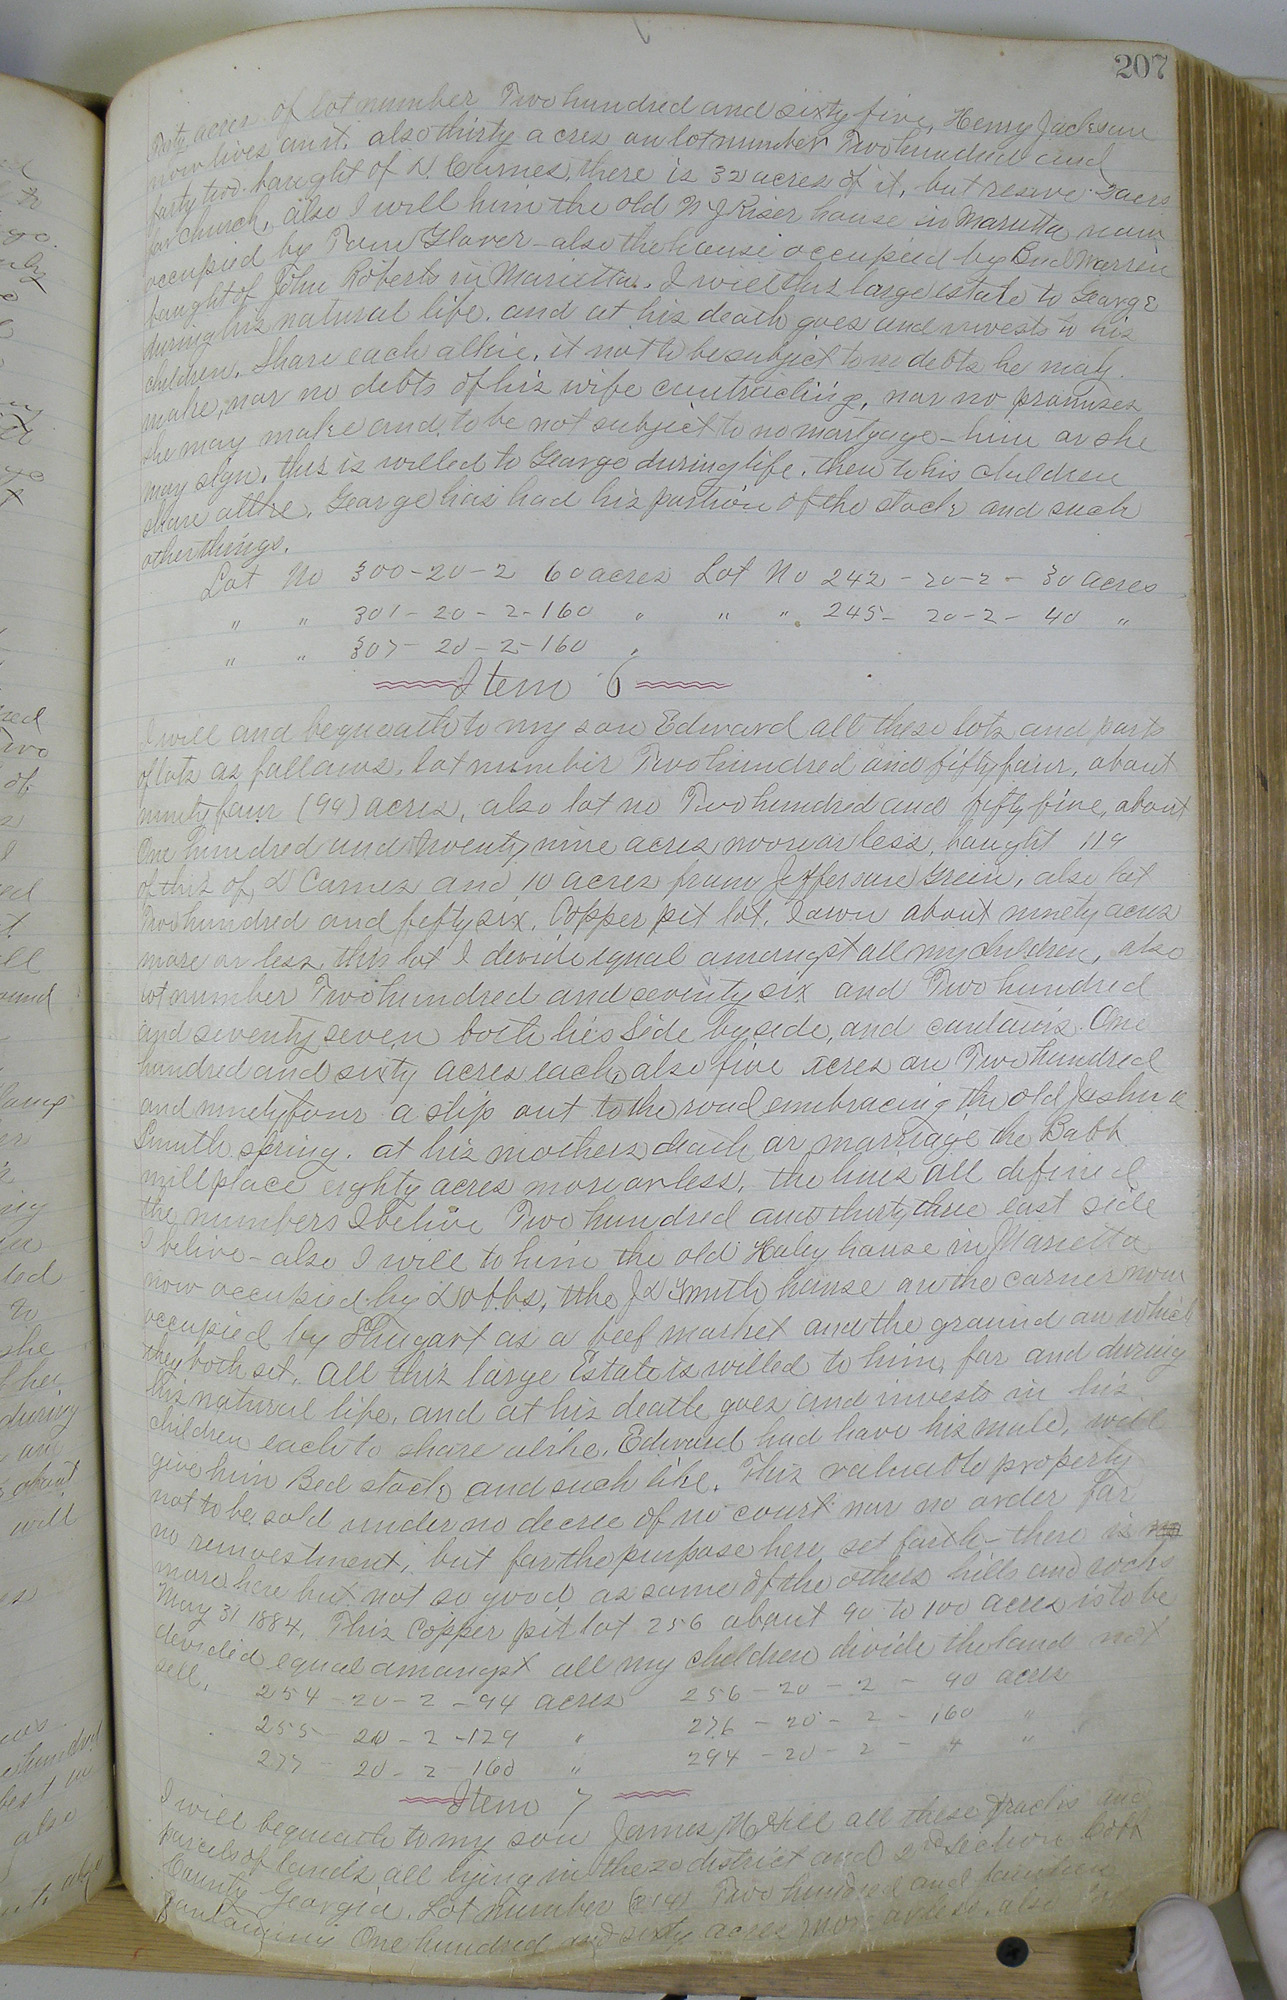 207
Forty acres of lot number Two hundred and sixty five, Henry Jackson
now lives on it. also thirty acres on lot number Two hundred and
forty two. bought of D. Carnes, there is 32 acres of it, but reserve 2 acres
for church, also I will him the old N J Kiser house in Marietta now
occupied by Tom Glover - also the house occupied by Bud Warren
bought of John Roberts in Marietta. I will this large estate to George
during his natural life. and at his death goes and invests to his
children. Share each alkie, it not to be subject to no debts he may
make, nor no debts of his wife contracting, nor no promises
she may make and to be not subject to no mortgage - him or she
may sign, this is willed to George during life. then to his children
share alike. George has had his portion of the stock and such
other things.
Lot No 300-20-2 60 acres Lot No 242 - 20-2 - 30 acres
" " 301-20-2-160 " " " 245- 20-2- 40 "
" " 307-20-2-160 "
Item 6
I will and bequeath to my son Edward all these lots and parts
of lots as follows. lot number Two hundred and fifty four, about
ninety four (94) acres, also lot no Two hundred and fifty five, about
One hundred and twenty nine acres more or less, bought 119
of this of D Carnes and 10 acres from Jefferson Green, also lot
Two hundred and fifty six, Copper pit lot, I own about ninety acres
more or less, this lot I devide equal amongst all my children, also
lot number Two hundred and seventy six and Two hundred
and seventy seven both lies Side by side, and contains One
hundred and sixty acres each, also five acres on Two hundred
and ninety four a slip out to the road embracing the old Joshua
Smith spring. at his mothers death or marriage the Babb
mill place eighty acres more or less, the lines all defined
the numbers I belive Two hundred and thirty three east side
I belive - also I will to him the old Haley house in Marietta
now occupied by Dobbs, the J D Smith house on the corner now
occupied by Shugart as a beef market and the ground on which
they both set. All this large Estate is willed to him, for and during
his natural life, and at his death goes and invests in his
children each to share alike. Edward had have his mule, will
give him Bed stock and such like. This valuable property
not to be sold under no decree of no court nor no order for
no reinvestment, but for the purpose here set forth - there is no
more here but not so good as some of the others hills and rocks
May 31 1884. This Copper pit lot 256 about 90 to 100 acres is to be
devided equal amongst all my children divide the land not
sell.
254-20-2-94 acres 256-20-2 - 90 acres
255-20-2-129 " 276-20-2 - 160 "
277-20-2 160 " 294-20-2 - 4 "
Item 7
I will bequeath to my son James M Hill all these tracts and
parcels of lands all lying in the 20 district and 2nd section Cobb
County Georgia. Lot number (214) Two hundred and fourteen
Containing One hundred and sixty acres more or less, also